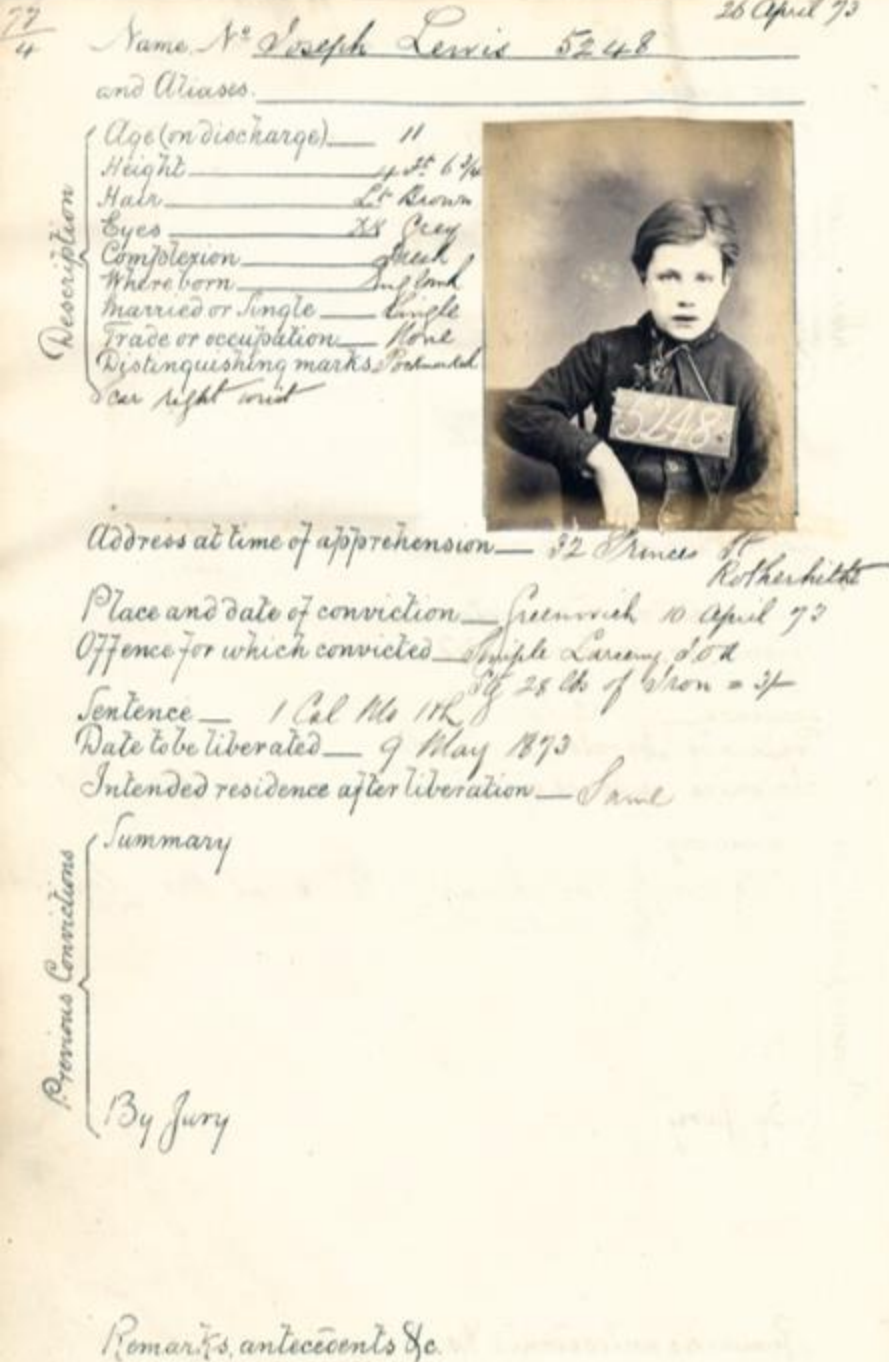 77/4
26 April 73
Name, No Joseph Lewis 5248
and Aliases.
Description
Age (on discharge) 11
Height 4 ft 6 3/4
Hair Lt Brown
Eyes Grey
Complexion Fresh
Where born England
Married or Single Single
Trade or occupation None
Distinguishing marks Pockmarked
Scar right wrist
5248
Address at time of apprehension 32 Princes St
Rotherhithe
Place and date of conviction Greenwich 10 April 73
Offence for which convicted Simple Larceny
28 lbs of Iron = 3/-
Sentence 1 Cal Mo
Date to be liberated 9 May 1873
Intended residence after liberation Same
Previous Convictions
Summary
By Jury
Remarks, antecedents &c.